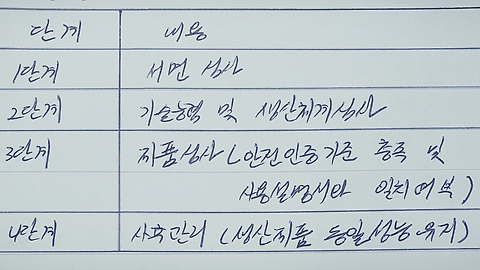 단계 내용
1단계 서면 심사
2단계 기술능력 및 생산체계심사
3단계 제품심사(안전인증기준 충족 및
사용설명서와 일치여부)
4단계 사후관리 (생산제품 동일성능유지)